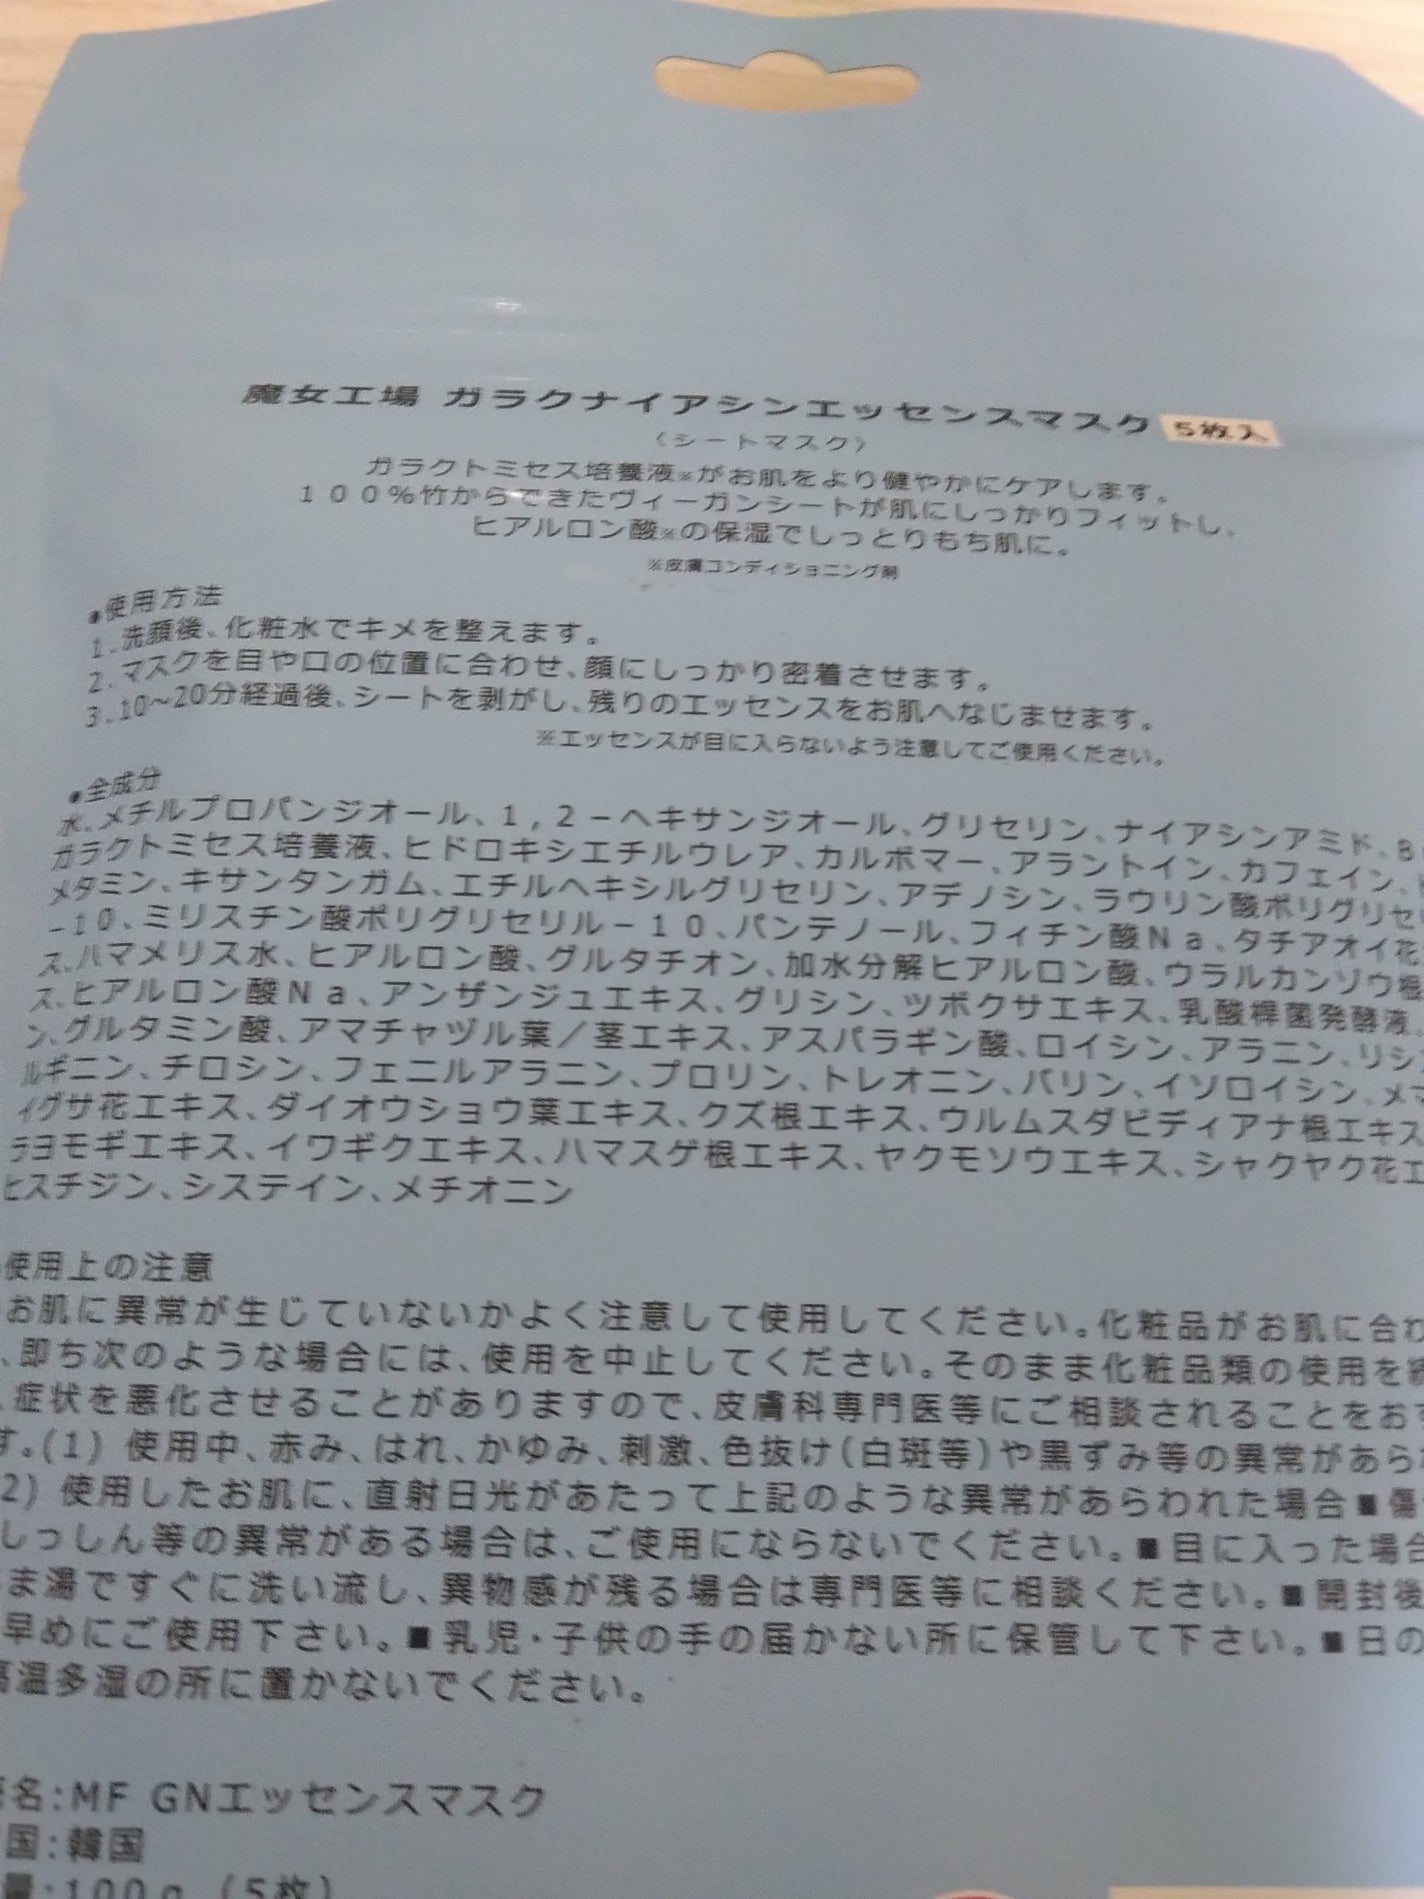 魔女工場 ガラクナイアシンエッセンスマスク 5枚入
〈シートマスク〉
ガラクトミセス培養液※がお肌をより健やかにケアします。
１００%竹からできたヴィーガンシートが肌にしっかりフィットし、
ヒアルロン酸※の保湿でしっとりもち肌に。
※皮膚コンディショニング剤
●使用方法
1.洗顔後、化粧水でキメを整えます。
2.マスクを目や口の位置に合わせ、顔にしっかり密着させます。
3.10~20分経過後、シートを剥がし、残りのエッセンスをお肌へなじませます。
※エッセンスが目に入らないよう注意してご使用ください。
●全成分
水、メチルプロパンジオール、１，２－ヘキサンジオール、グリセリン、ナイアシンアミド、
ガラクトミセス培養液、ヒドロキシエチルウレア、カルボマー、アラントイン、カフェイン、
メタミン、キサンタンガム、エチルヘキシルグリセリン、アデノシン、ラウリン酸ポリグリセ
－10、ミリスチン酸ポリグリセリル－１０、パンテノール、フィチン酸Ｎａ、タチアオイ花
ス、ハマメリス水、ヒアルロン酸、グルタチオン、加水分解ヒアルロン酸、ウラルカンゾウ根
ス、ヒアルロン酸Ｎａ、アンザンジュエキス、グリシン、ツボクサエキス、乳酸桿菌発酵液、
ン、グルタミン酸、アマチャヅル葉／茎エキス、アスパラギン酸、ロイシン、アラニン、リシ
ルギニン、チロシン、フェニルアラニン、プロリン、トレオニン、バリン、イソロイシン、メマ
イグサ花エキス、ダイオウショウ葉エキス、クズ根エキス、ウルムスダビディアナ根エキス
ラヨモギエキス、イワギクエキス、ハマスゲ根エキス、ヤクモソウエキス、シャクヤク花エ
ヒスチジン、システイン、メチオニン
使用上の注意
お肌に異常が生じていないかよく注意して使用してください。化粧品がお肌に合わ
、即ち次のような場合には、使用を中止してください。そのまま化粧品類の使用を続
、症状を悪化させることがありますので、皮膚科専門医等にご相談されることをお
す。(1) 使用中、赤み、はれ、かゆみ、刺激、色抜け(白斑等)や黒ずみ等の異常があら
2) 使用したお肌に、直射日光があたって上記のような異常があらわれた場合■傷
しっしん等の異常がある場合は、ご使用にならないでください。■目に入った場合
ま湯ですぐに洗い流し、異物感が残る場合は専門医等に相談ください。■開封後
早めにご使用下さい。■乳児・子供の手の届かない所に保管して下さい。■日の
高温多湿の所に置かないでください。
名:MF GNエッセンスマスク
国:韓国
量:100g (5枚)